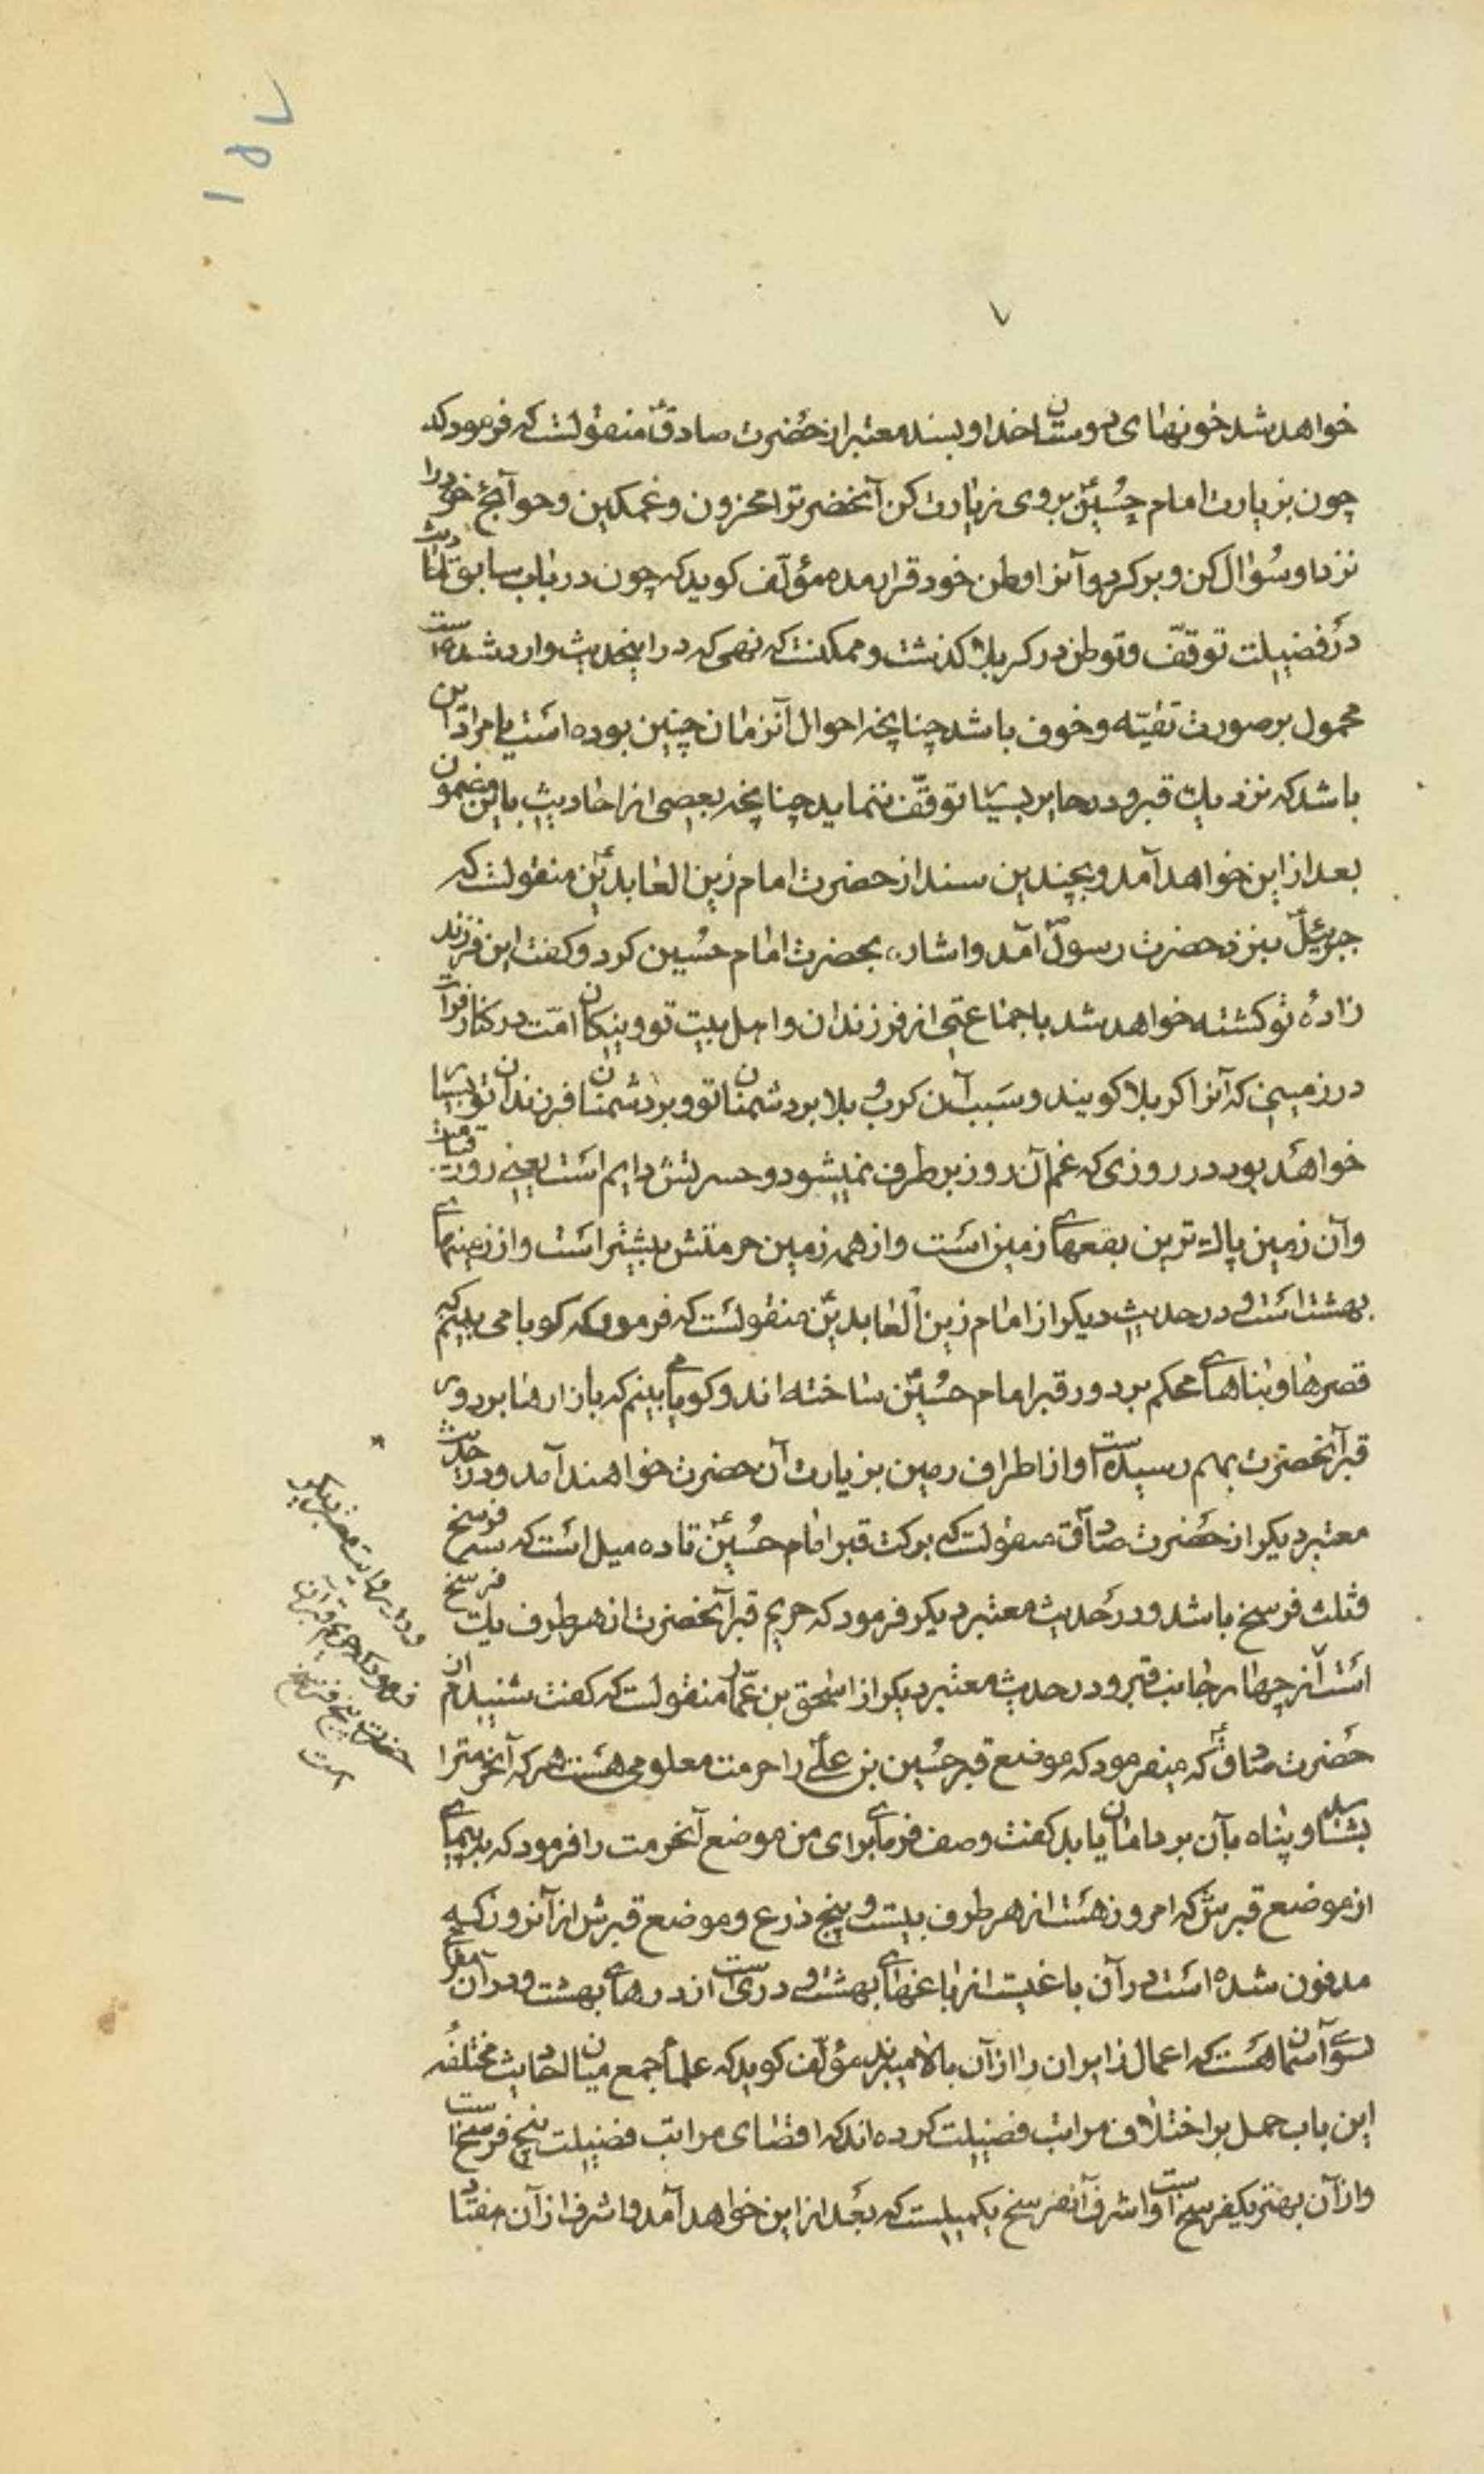 ۱۵۷
۷
خواهد شد خونهای دوستان خدا و بسند معتبر از حضرت صادقؑ منقولست که فرمود که
چون بزیارت امام حسینؑ بروی زیارت کن آنحضرترا محزون و غمکین و حوایج خود را
نزد او سُؤال کن و برکرد و آنرا وطن خود قرار مده مؤلّف کوید که چون در باب سابق
در فضیلت توقّف و توطن در کربلا کذشت و ممکنست که نهی که در اینحدیث وارد شده است
محمول بر صورت تقیّه و خوف باشد چنانچه احوال آنزمان چنین بوده است یا مراد این
باشد که نزدیك قبر و در حایر بسیار توقّف ننماید چنانچه بعضی از احادیث باین مضمون
بعد از این خواهد آمد و بچندین سند از حضرت امام زین العابدینؑ منقولست که
جبرئیلؑ بنزد حضرت رسولؐ آمد و اشاره بحضرت امام حسین کرد و کفت این فرزند
زادهٔ تو کشته خواهد شد با جماعتی از فرزندان و اهل بیت تو و نیکان امّت در کنار فرات
در زمینی که آنرا کربلا کویند و سبب آن کرب و بلا بر دشمنان تو و بر دشمنان فرزندان تو بسیار
خواهد بود در روزی که غم آن روز برطرف نمیشود و حسرتش دایم است یعنی روز قیامت
و آن زمین پاك ترین بقعهای زمین است و از همه زمین حرمتش بیشتر است و از زمینهای
بهشت است و در حدیث دیکر از امام زین العابدینؑ منقولست که فرمود که کویا می بینم که
قصرها و بناهای محکم بر دور قبر امام حسینؑ ساخته اند و کویا می بینم که بازارها بر دور
قبر آنحضرت بهم رسیده است و از اطراف زمین بزیارت آن حضرت خواهند آمد و در حدیث
معتبر دیکر از حضرت صادقؑ منقولست که برکت قبر امام حسینؑ تا ده میل است که سه فرسخ
و ثلث فرسخ باشد و در حدیث معتبر دیکر فرمود که حریم قبر آنحضرت از هر طرف یك فرسخ
است از چهار جانب قبر و در حدیث معتبر دیکر از اسحق بن عمّار منقولست که کفت شنیدم از
حضرت صادقؑ که میفرمود که موضع قبر حسین بن علیؑ را حرمت معلومی هست هر که آنحرمترا
بشناسد و پناه بآن برد امان یابد کفت وصف فرمای برای من موضع آنحرمت را فرمود که بپیمای
از موضع قبرش که امروز هست از هر طرف بیست و پنج ذرع و موضع قبرش از آنروز که
مدفون شده است در آن باغیست از باغهای بهشت و دری است از درهای بهشت و در آن
بسوی آسمان هست که اعمال زایران را از آن بالا میبرند مؤلّف کوید که علما جمع میان احادیث مختلفه
این باب حمل بر اختلاف مراتب فضیلت کرده اند که اقصای مراتب فضیلت پنج فرسخ است
و از آن بهتر یکفرسخ است و اشرف آنفرسخ یکمیلست که بعد از این خواهد آمد و اشرف از آن هفتاد
و در روایت معتبر دیکر
فرمود که حریم قبر آن
حضرت پنج فرسخ
است